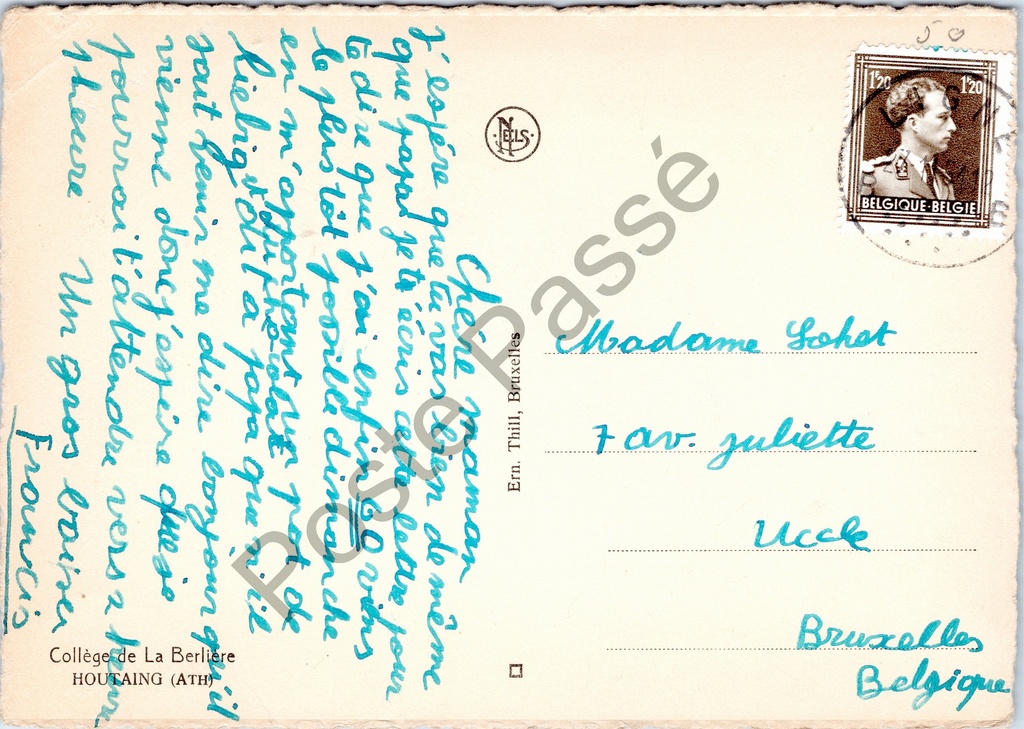 Chère maman
j'espère que tu vas bien de même
que papa je t'écris cette lettre pour
te dire que j'ai enfin 60 vins
le plus tôt possible dimanche
en m'apportant un pot de
Liebig du chocolat
dit à papa que s'il
saut venir me dire bonjour qu'il
vienne donc j'espère que je
pourrai t'attendre vers 2 heure
heure Un gros baiser
Francis
Collège de La Berlière
HOUTAING (ATH)
NELS
Ern. Thill, Bruxelles
50
1F20 1F20
BELGIQUE-BELGIE
Madame Lehet
7 av. Juliette
Uccle
Bruxelles
Belgique
Poste Passé